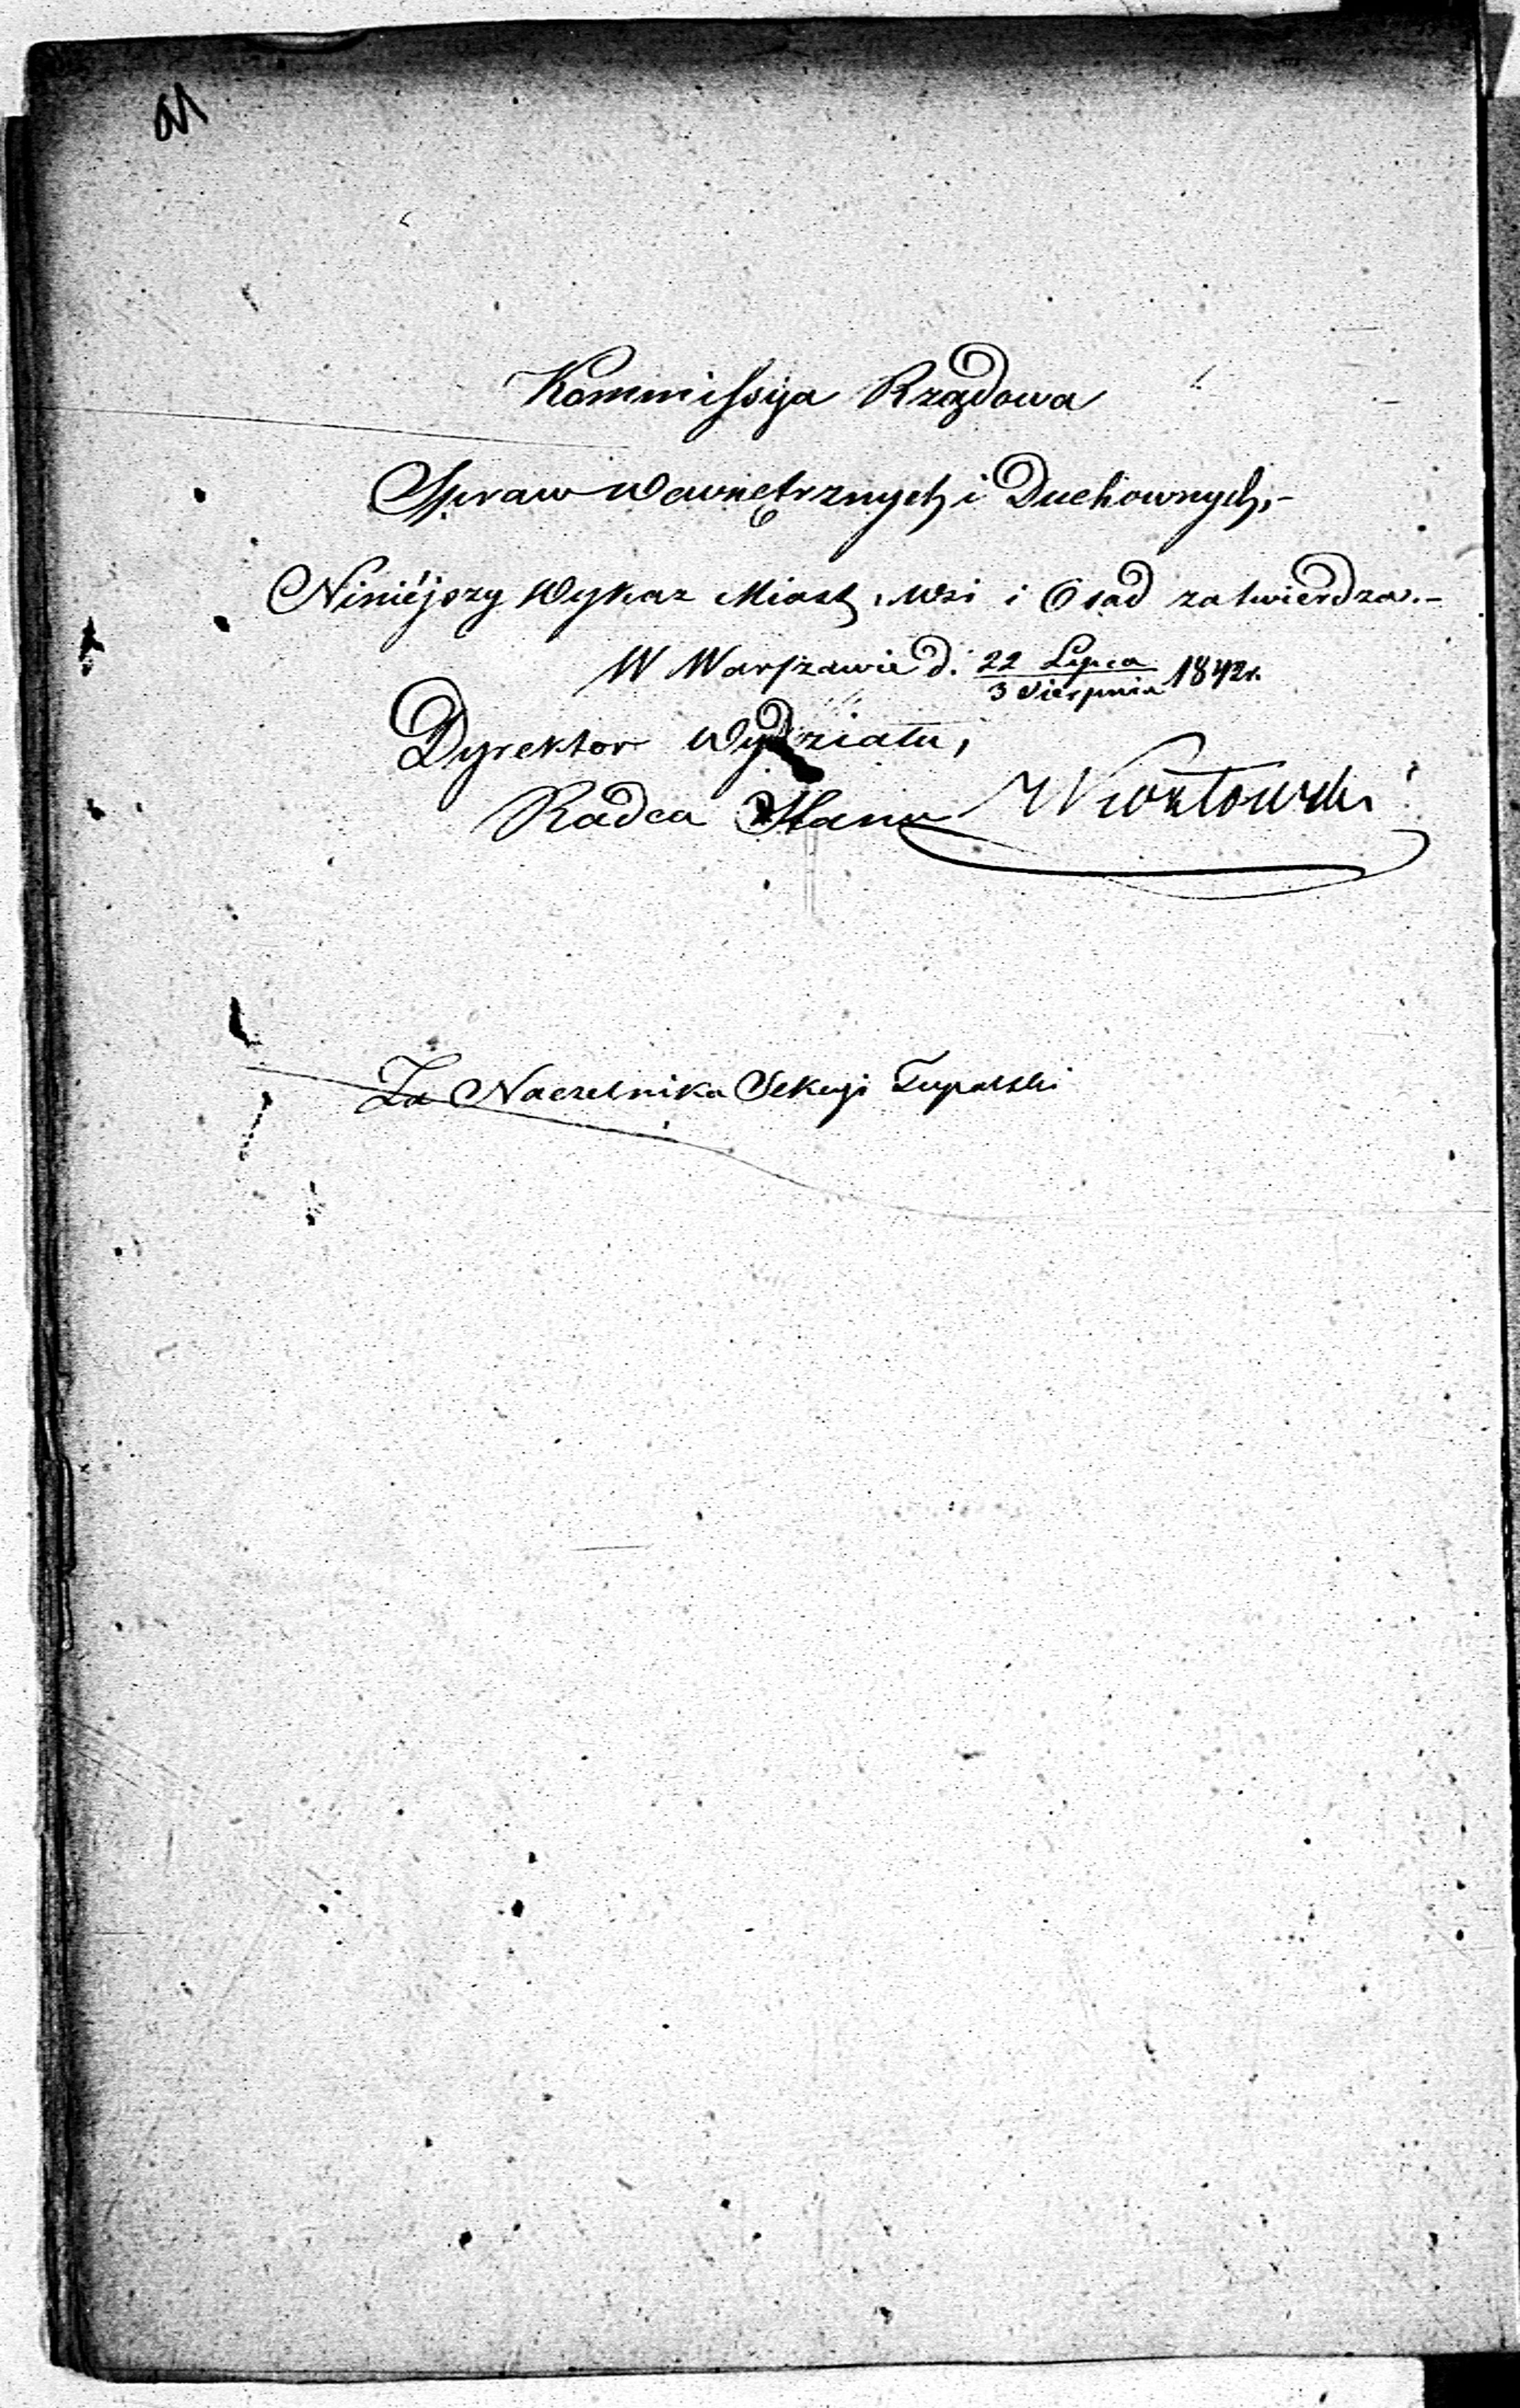 Kommissya Rządowa
Spraw Wewnętrznych i Duchownych,-
Niniéjszy Wykaz Miast, Wsi i Osad zatwierdza.-
W Warszawie d. 22 Lipca / 3 Sierpnia 1842 r.
Dyrektor Wydziału,
Radca Stanu
Za Naczelnika Sekcyi